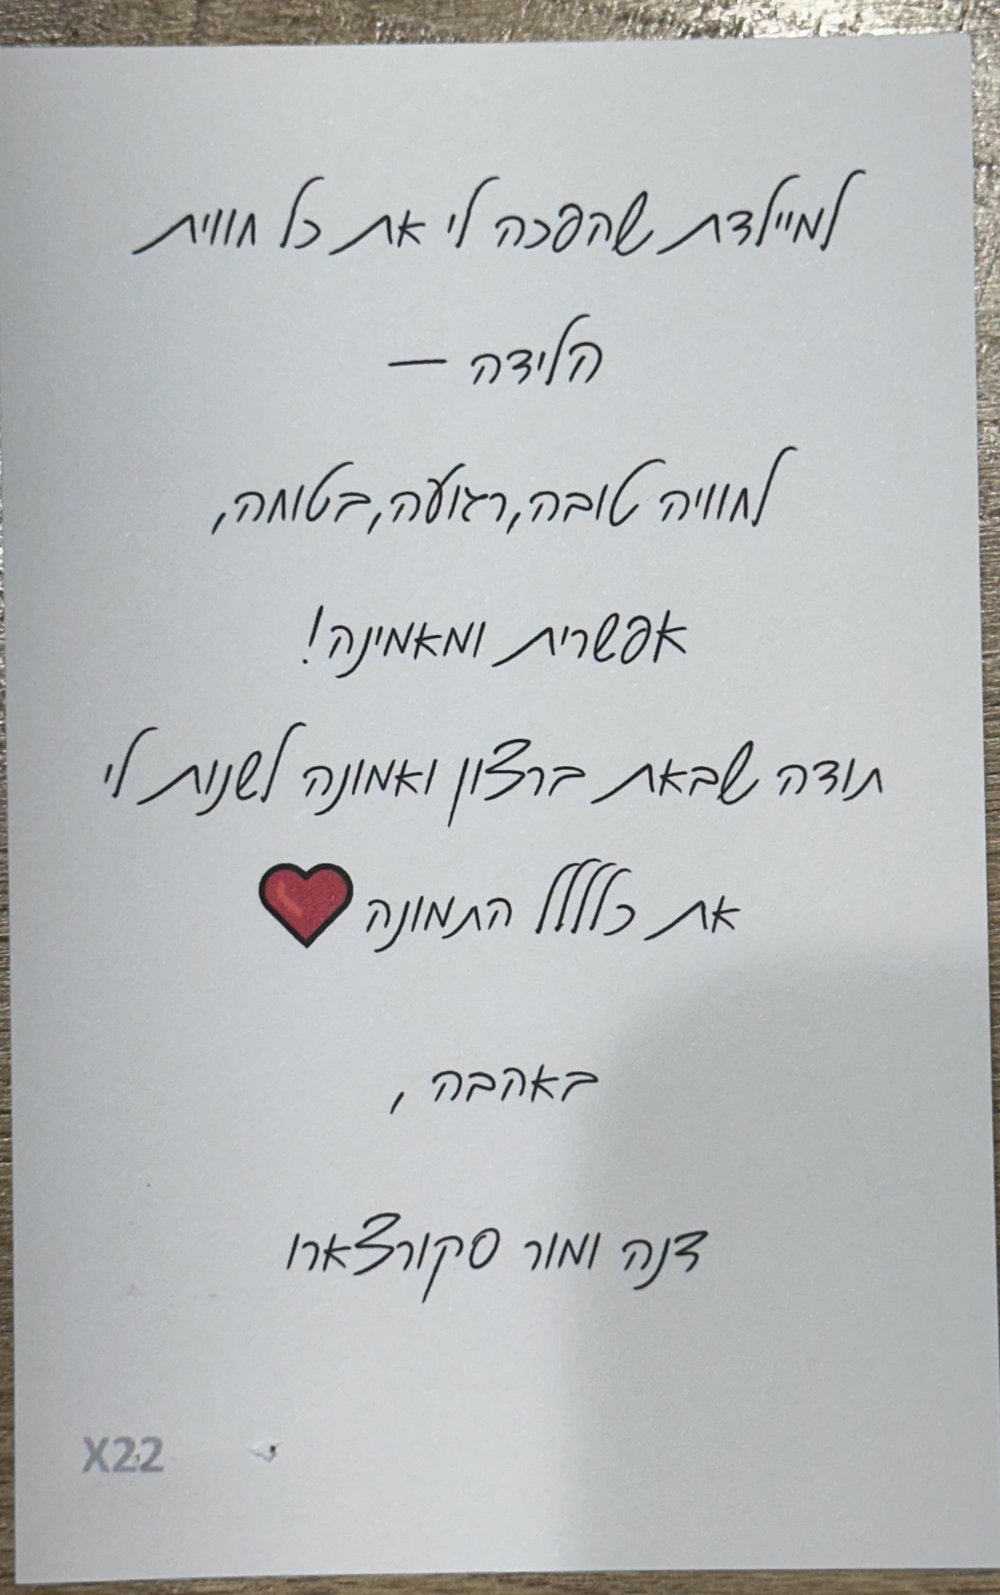 למיילדת שהפכה לי את כל חווית
הלידה —
לחוויה טובה,רגועה,בטוחה,
אפשרית ומאמינה!
תודה שבאת ברצון ואמונה לשנות לי
את כללללל התמונה❤️
באהבה ,
דנה ומור סקורצארו
X22